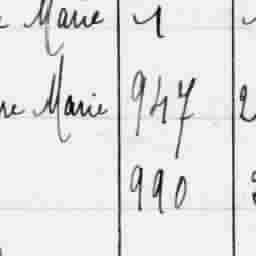 Marie 1
re Marie 947 2
990